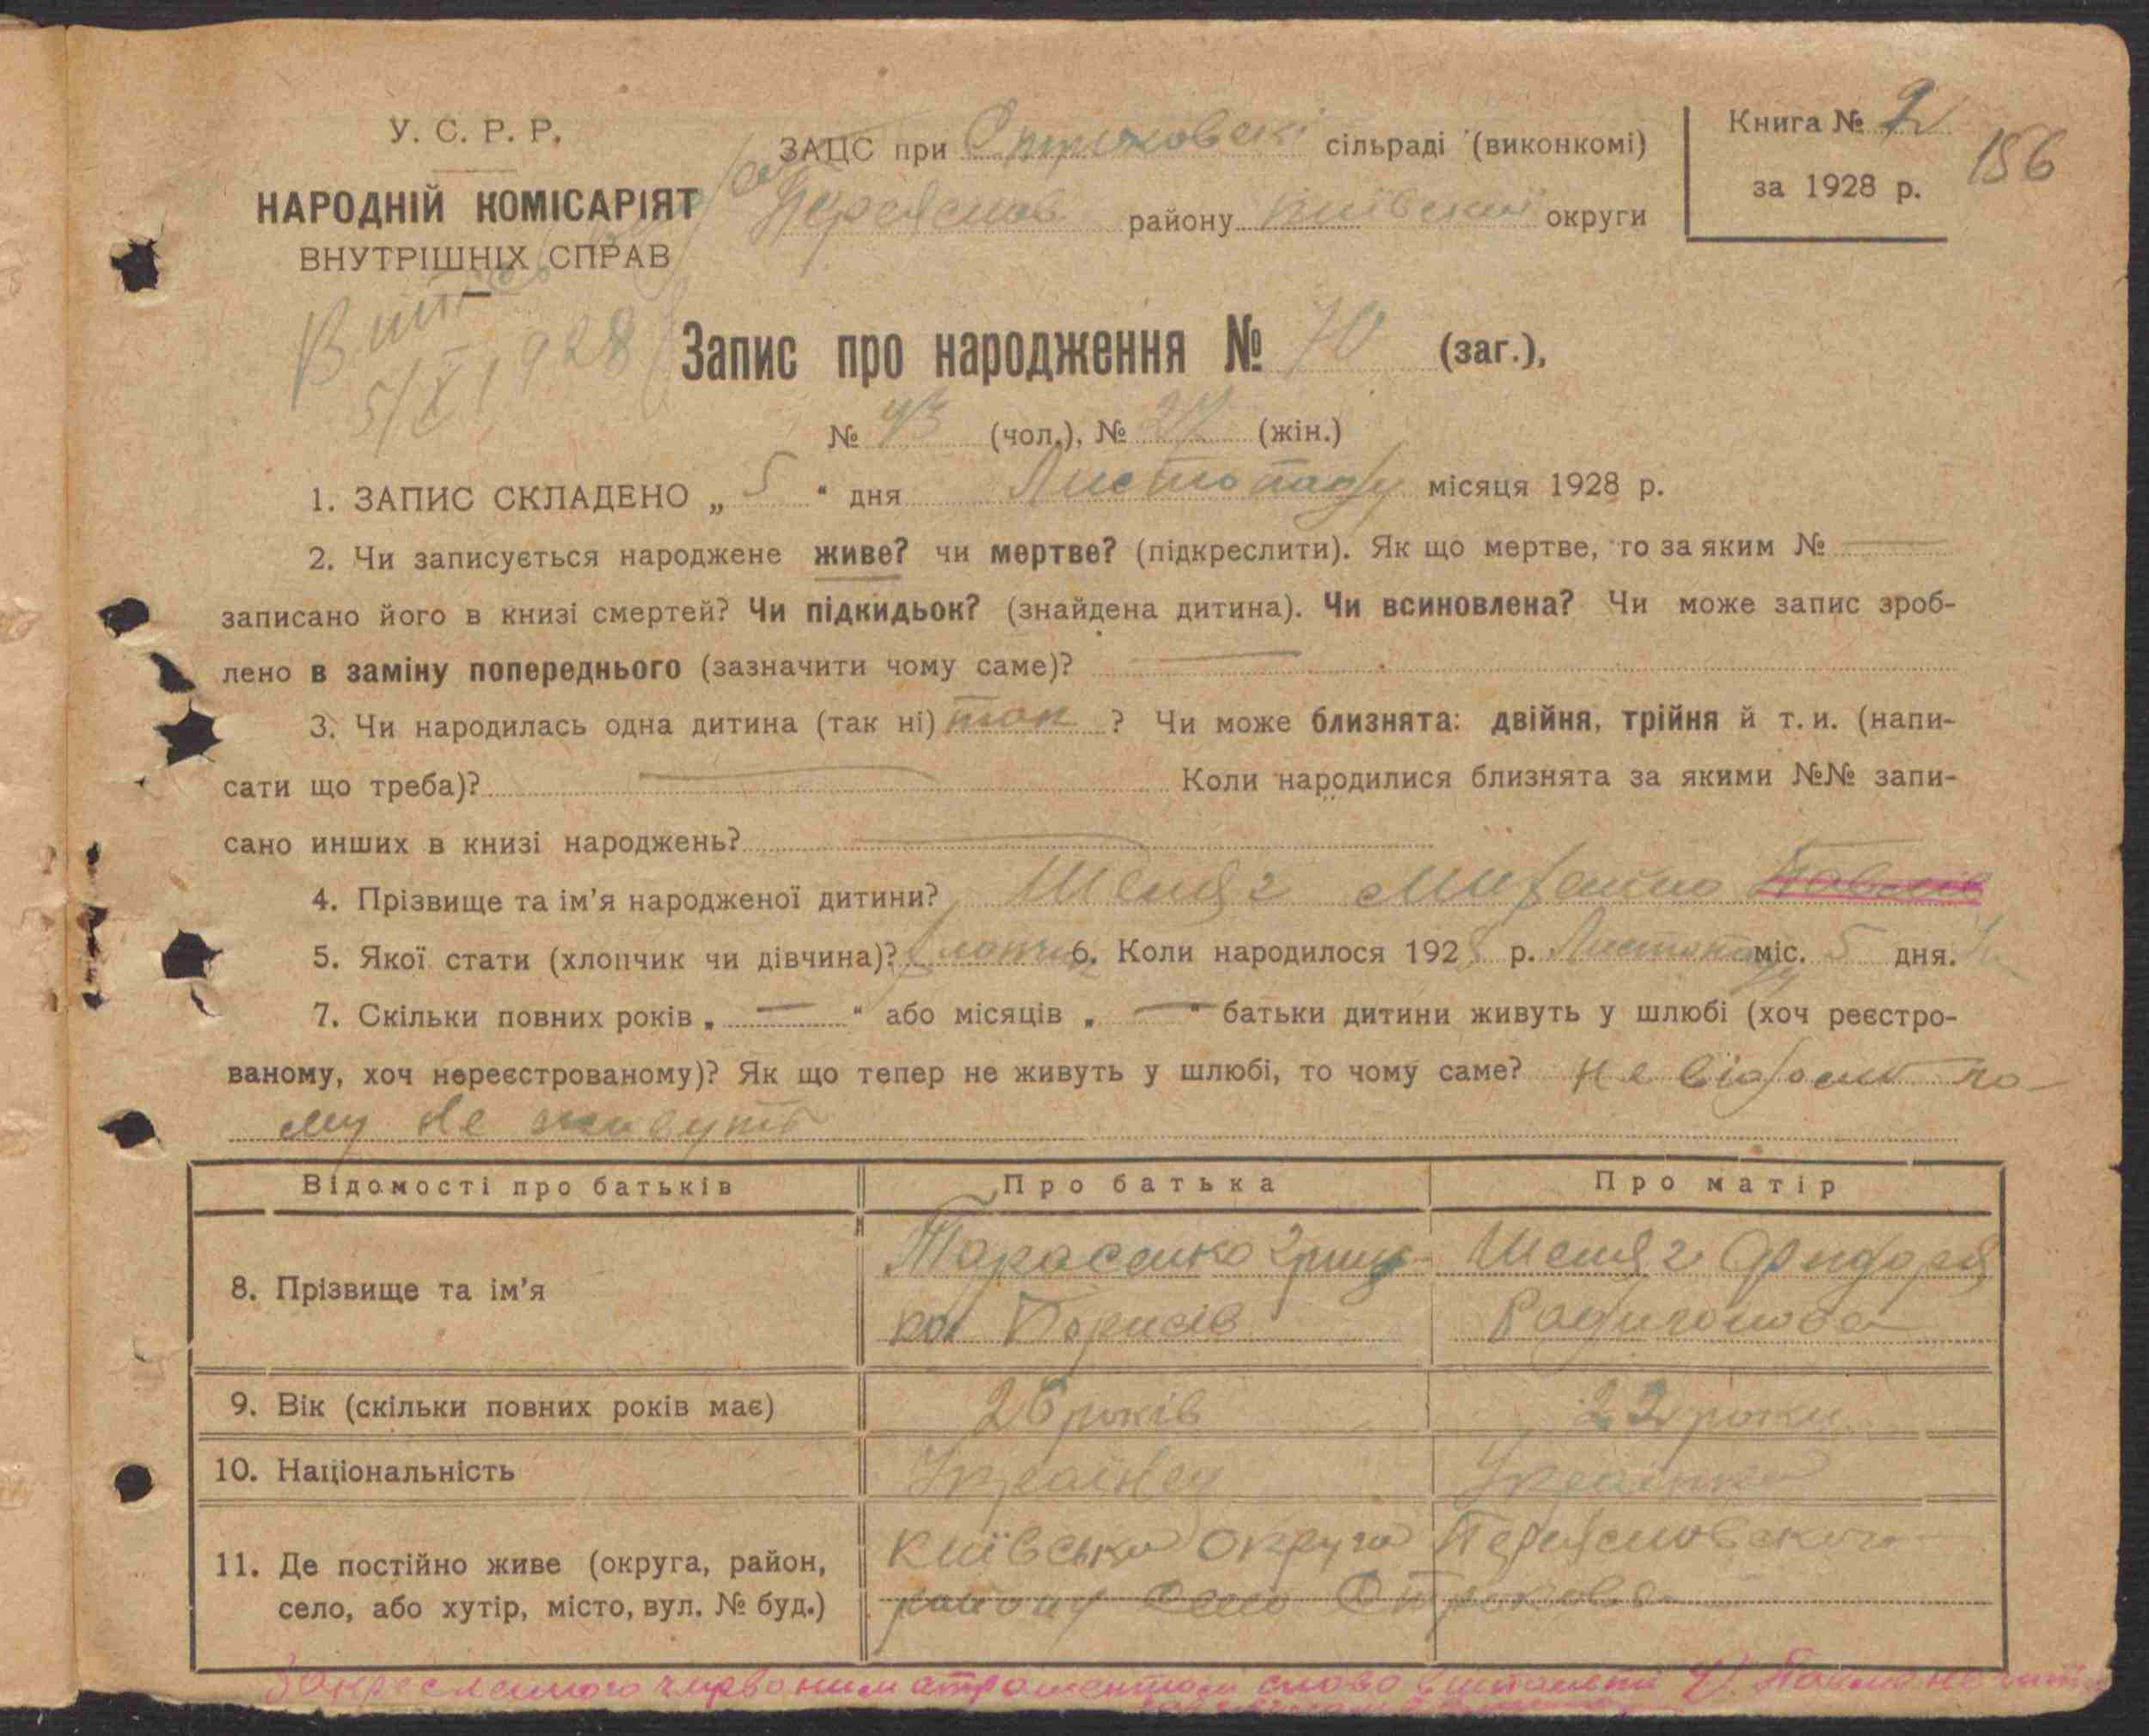 У. С. Р. Р.
НАРОДНІЙ КОМІСАРІЯТ
ВНУТРІШНІХ СПРАВ
ЗАЦС при сільраді (виконкомі)
Переяслав району Київської округи
Книга № 2
за 1928 р.
156
5/XI 1928
Запис про народження № 70 (заг.),
№ 43 (чол.), № 27 (жін.)
1. ЗАПИС СКЛАДЕНО „ 5 “ дня Листопаду місяця 1928 р.
2. Чи записується народжене живе? чи мертве? (підкреслити). Як що мертве, то за яким № —
записано його в книзі смертей? Чи підкидьок? (знайдена дитина). Чи всиновлена? Чи може запис зроб-
лено в заміну попереднього (зазначити чому саме)? —
3. Чи народилась одна дитина (так ні) так ? Чи може близнята: двійня, трійня й т. и. (напи-
сати що треба)? — Коли народилися близнята за якими №№ запи-
сано инших в книзі народжень? —
4. Прізвище та ім’я народженої дитини? Михайло
5. Якої стати (хлопчик чи дівчина)? хлопчик 6. Коли народилося 1928 р. Листопаду міс. 5 дня.
7. Скільки повних років „ — “ або місяців „ — “ батьки дитини живуть у шлюбі (хоч реєстро-
ваному, хоч нереєстрованому)? Як що тепер не живуть у шлюбі, то чому саме? не відомо чо-
му не живуть
Відомості про батьків Про батька Про матір
8. Прізвище та ім’я Тарасенко Гриць-
ко Борисів
9. Вік (скільки повних років має) 26 років 22 роки
10. Національність Українец Українка
11. Де постійно живе (округа, район,
село, або хутір, місто, вул. № буд.)
Київська округа Переясловского
району село
Закресленного червоним атраментом слово